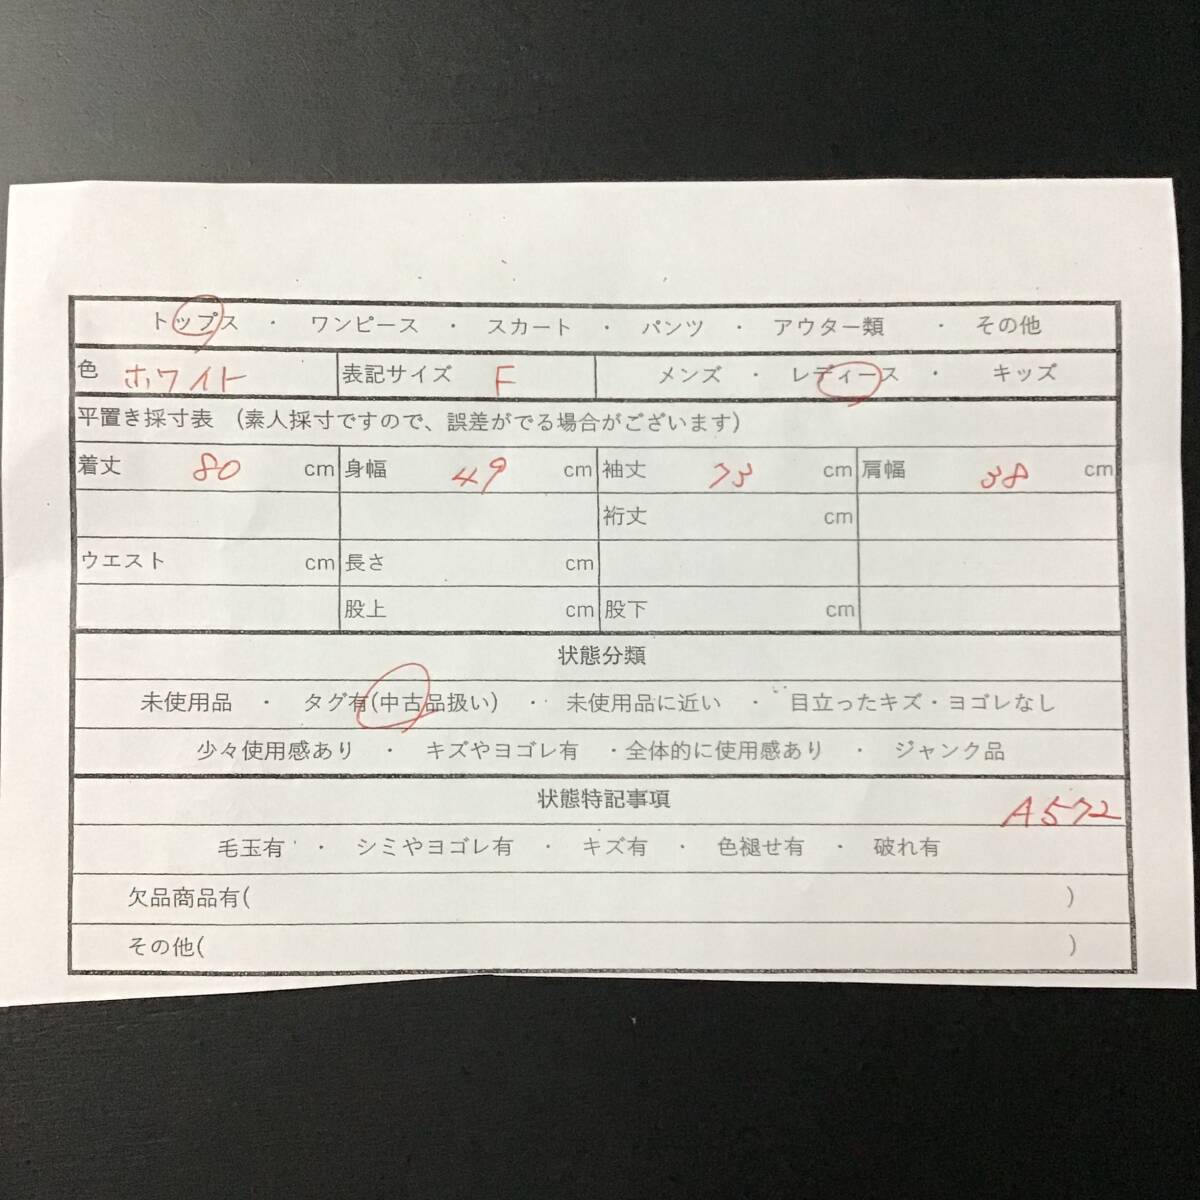 トップス ・ ワンピース ・ スカート ・ パンツ ・ アウター類 ・ その他
色 ホワイト 表記サイズ F メンズ ・ レディース ・ キッズ
平置き採寸表 (素人採寸ですので、誤差がでる場合がございます)
着丈 80 cm 身幅 49 cm 袖丈 73 cm 肩幅 38 cm
裄丈 cm
ウエスト cm 長さ cm
股上 cm 股下 cm
状態分類
未使用品 ・ タグ有(中古品扱い) ・ 未使用品に近い ・ 目立ったキズ・ヨゴレなし
少々使用感あり ・ キズやヨゴレ有 ・全体的に使用感あり ・ ジャンク品
状態特記事項 A572
毛玉有 ・ シミやヨゴレ有 ・ キズ有 ・ 色褪せ有 ・ 破れ有
欠品商品有( )
その他( )